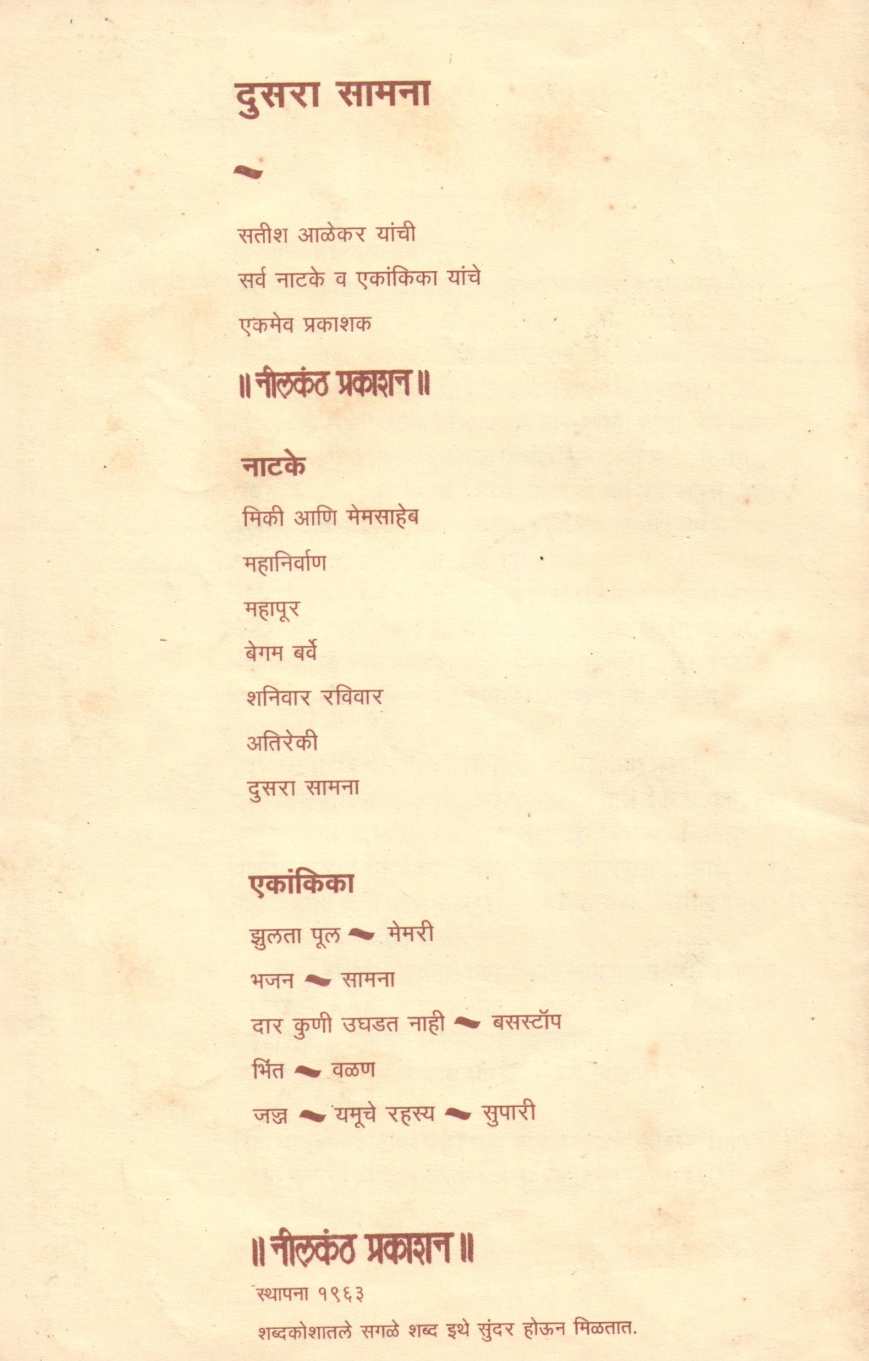 दुसरा सामना
~
सतीश आळेकर यांची
सर्व नाटके व एकांकिका यांचे
एकमेव प्रकाशक
॥ नीलकंठ प्रकाशन ॥
नाटके
मिकी आणि मेमसाहेब
महानिर्वाण
महापूर
बेगम बर्वे
शनिवार रविवार
अतिरेकी
दुसरा सामना
एकांकिका
झुलता पूल ~ मेमरी
भजन ~ सामना
दार कुणी उघडत नाही ~ बसस्टॉप
भिंत ~ वळण
जज्ज ~ यमूचे रहस्य ~ सुपारी
॥ नीलकंठ प्रकाशन ॥
स्थापना १९६३
शब्दकोशातले सगळे शब्द इथे सुंदर होऊन मिळतात.